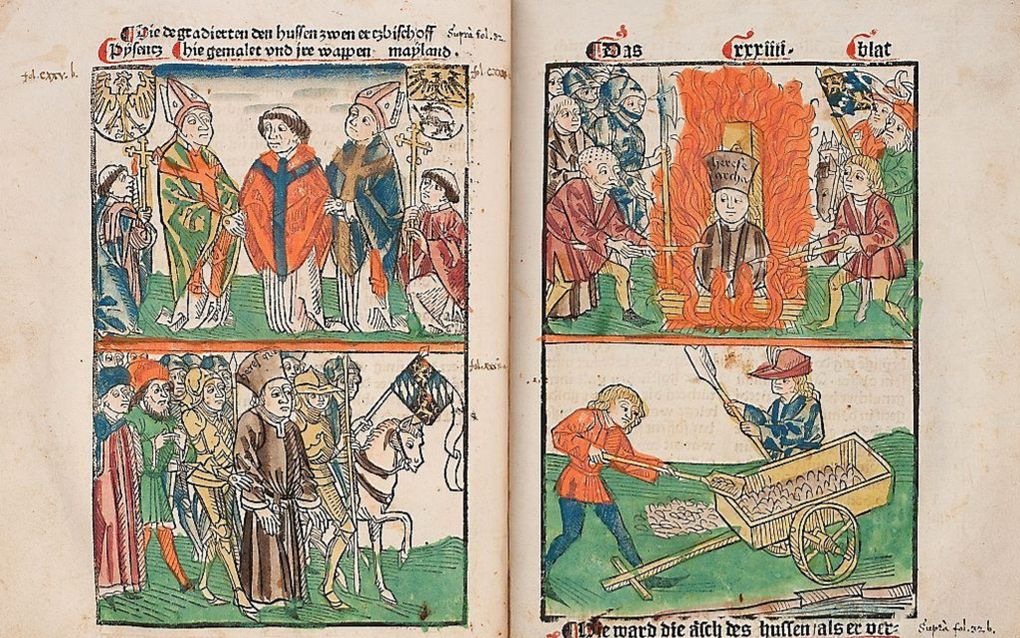 Die degradierten den hussen zwen ertzbischoff
Pysentz hie gemalet vnd ire wappen mayland.
Suprà fol. 32.
fol. CXXV. b.
Das Cxxxiiii. blat
heresi archa
Wie ward die äsch des hussen/als er ver-
Suprà fol. 32. b.